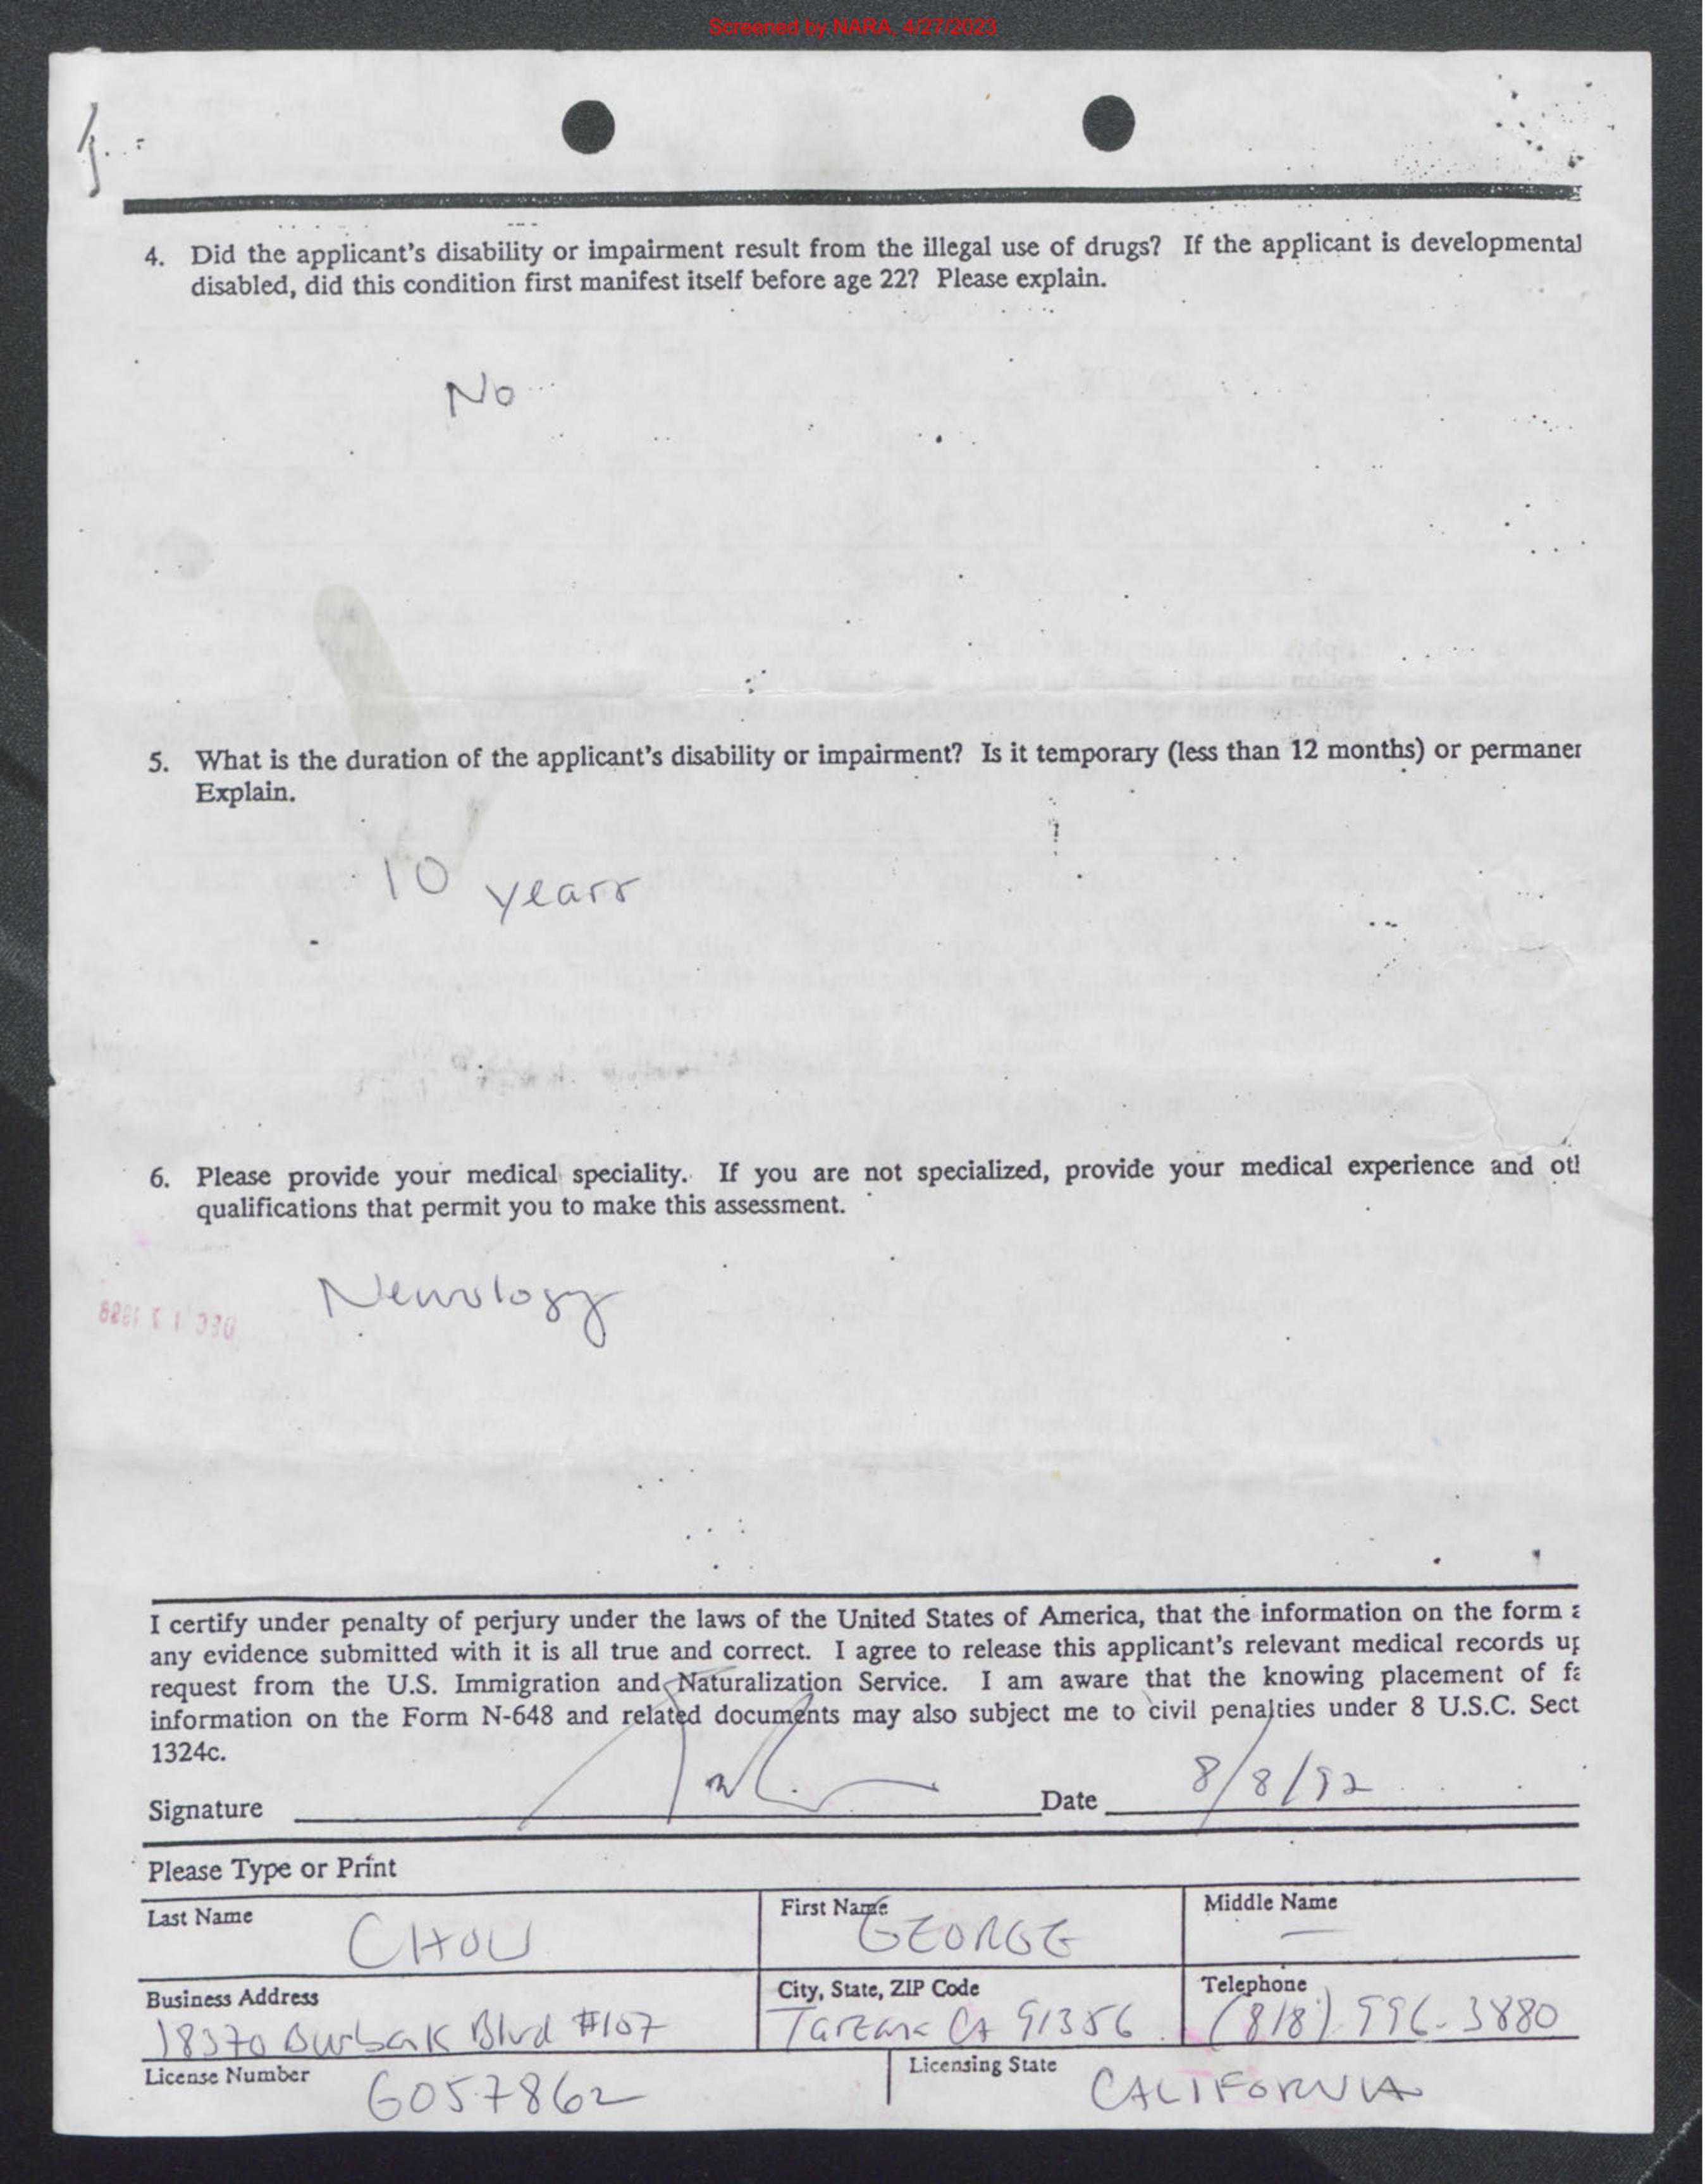 Screened by NARA, 4/27/2023
4. Did the applicant's disability or impairment result from the illegal use of drugs? If the applicant is developmental
disabled, did this condition first manifest itself before age 22? Please explain.
No
5. What is the duration of the applicant's disability or impairment? Is it temporary (less than 12 months) or permaner
Explain.
10 years
6. Please provide your medical speciality. If you are not specialized, provide your medical experience and otl
qualifications that permit you to make this assessment.
DEC 17 1998
Neurology
I certify under penalty of perjury under the laws of the United States of America, that the information on the form a
any evidence submitted with it is all true and correct. I agree to release this applicant's relevant medical records up
request from the U.S. Immigration and Naturalization Service. I am aware that the knowing placement of fa
information on the Form N-648 and related documents may also subject me to civil penalties under 8 U.S.C. Sect
1324c.
Signature Date 8/8/92
Please Type or Print
Last Name First Name Middle Name
CHOU GEORGE —
Business Address City, State, ZIP Code Telephone
18370 Burbank Blvd #107 Tarzana CA 91356 (818) 996-3880
License Number Licensing State
G057862 CALIFORNIA